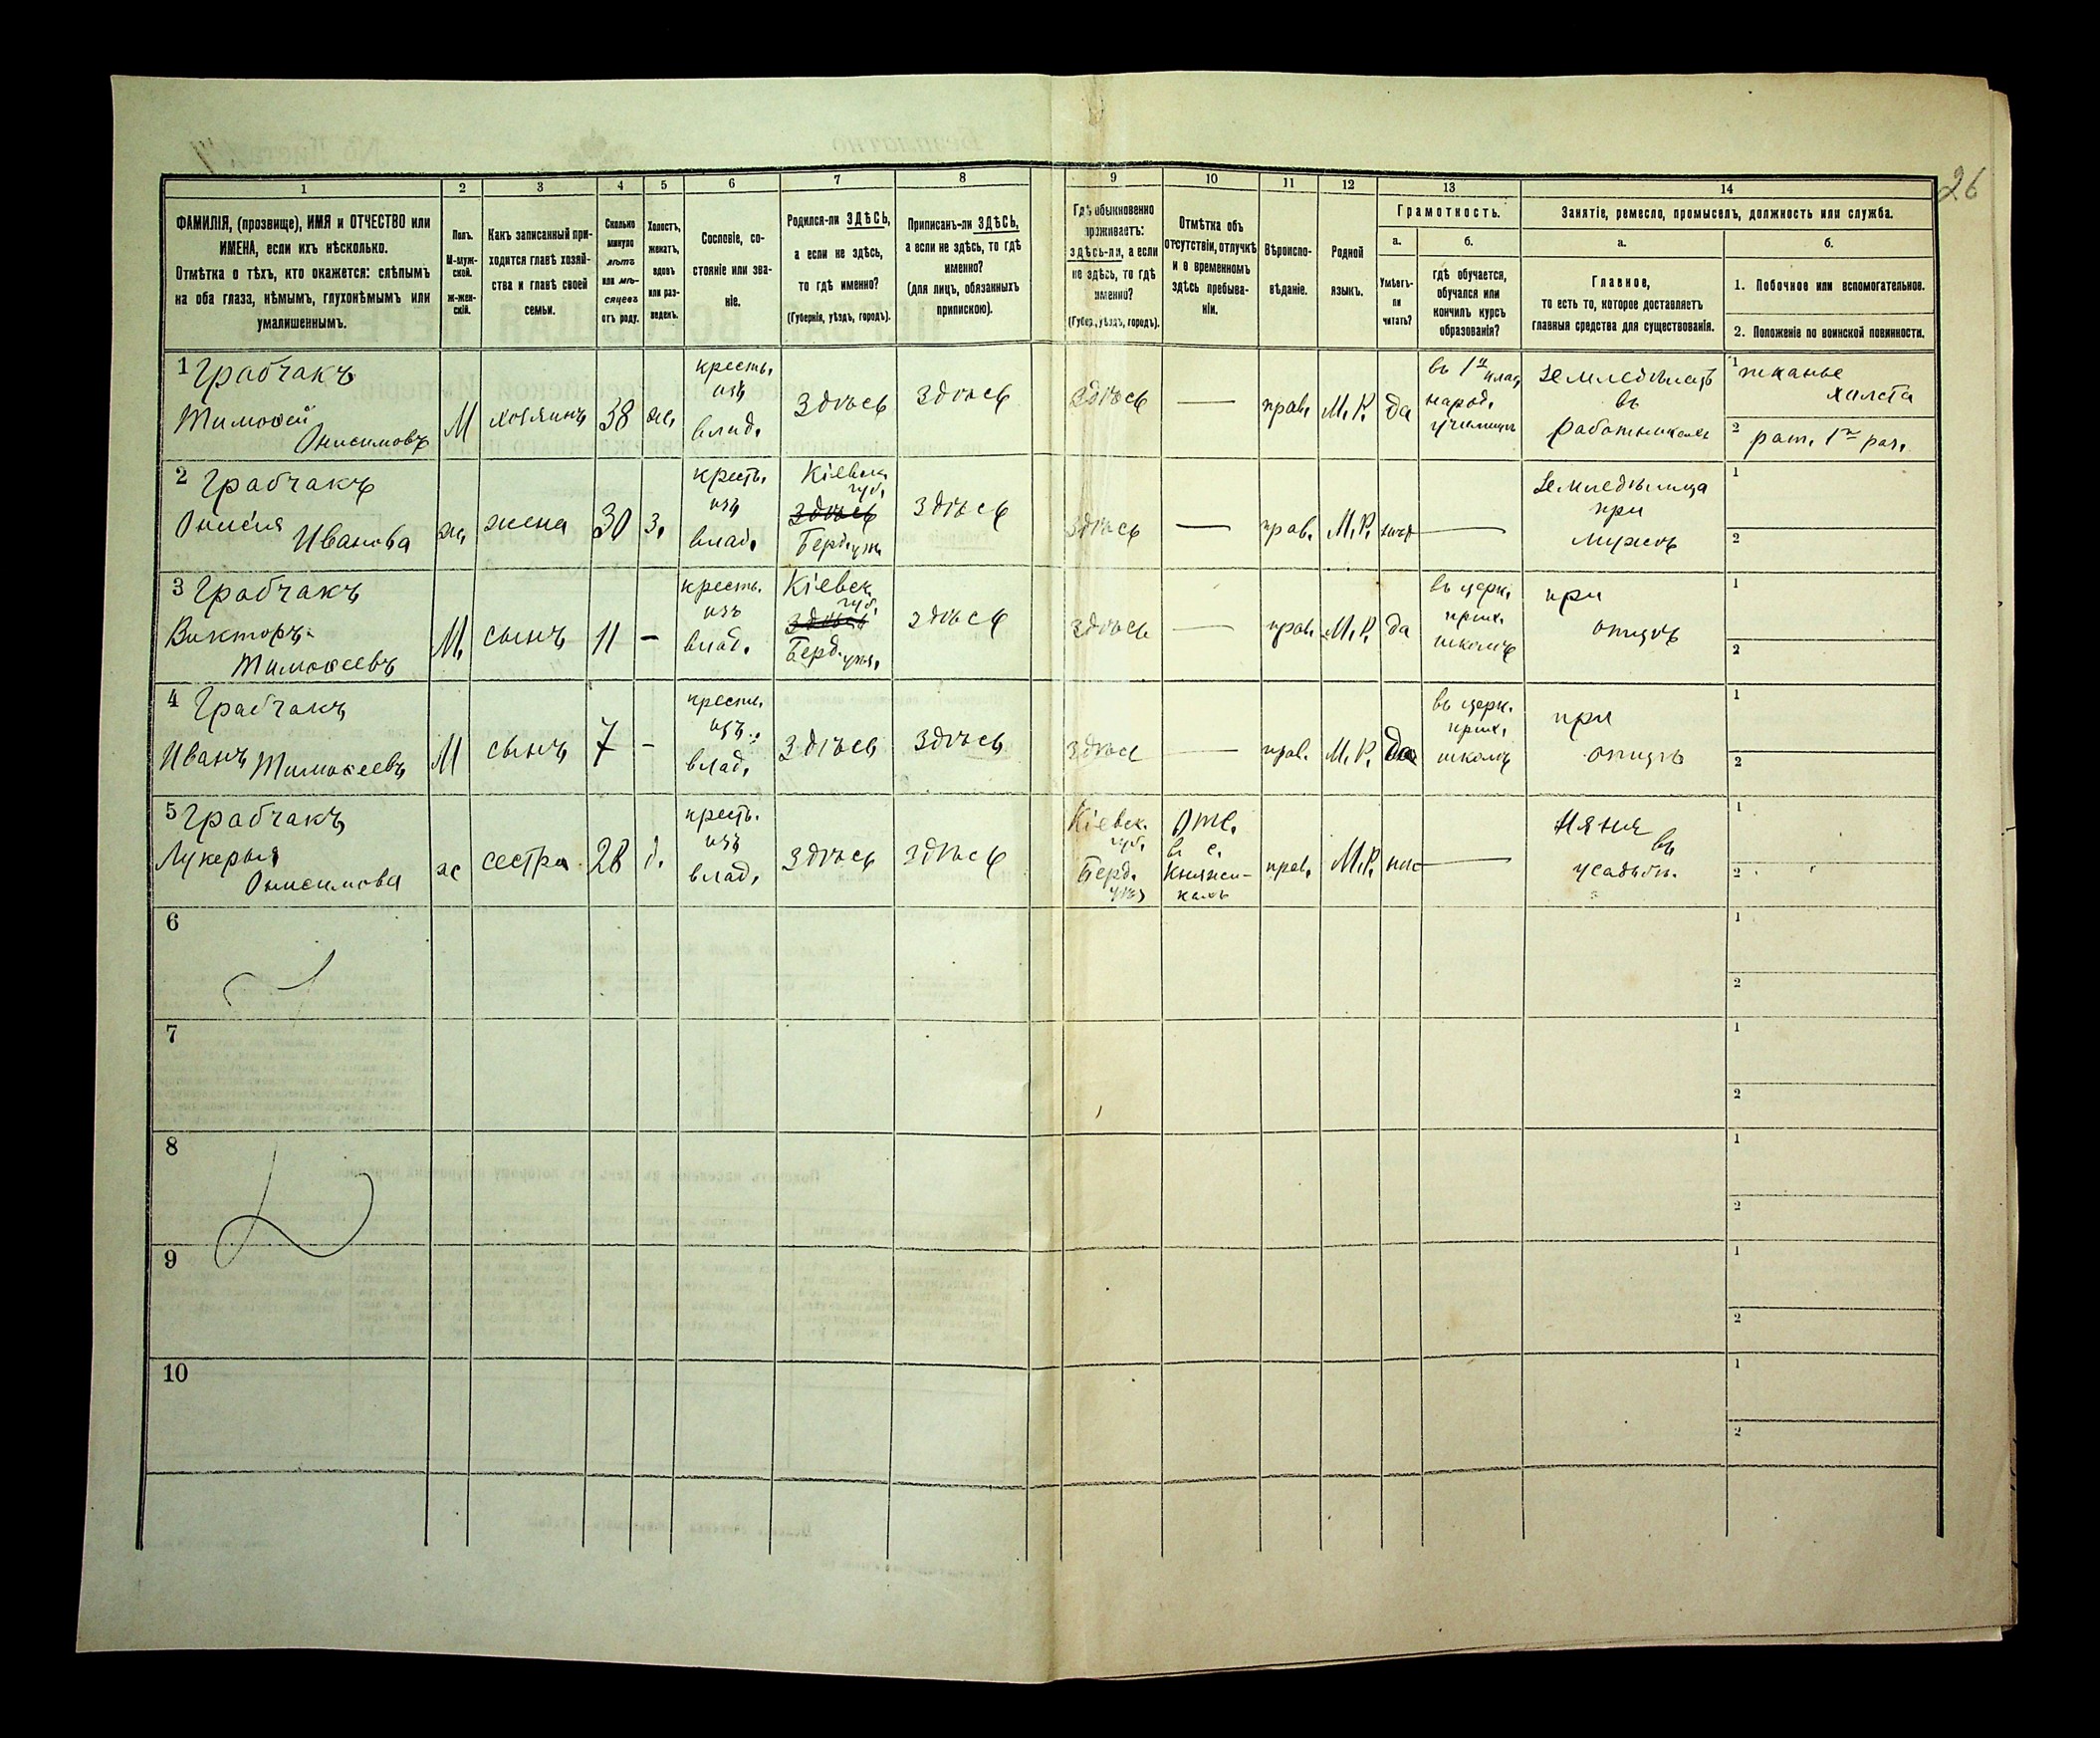 26
1 2 3 4 5 6 7 8 9 10 11 12 13 14
ФАМИЛІЯ, (прозвище), ИМЯ и ОТЧЕСТВО или
ИМЕНА, если ихъ нѣсколько.
Отмѣтка о тѣхъ, кто окажется: слѣпымъ
на оба глаза, нѣмымъ, глухонѣмымъ или
умалишеннымъ.
Полъ.
М-муж-
ской.
ж-жен-
скій.
Какъ записанный при-
ходится главѣ хозяй-
ства и главѣ своей
семьи.
Сколько
минуло
лѣтъ
или мѣ-
сяцевъ
отъ роду.
Холостъ,
женатъ,
вдовъ
или раз-
веденъ.
Сословіе, со-
стояніе или зва-
ніе.
Родился-ли ЗДѢСЬ,
а если не здѣсь,
то гдѣ именно?
(Губернія, уѣздъ, городъ).
Приписанъ-ли ЗДѢСЬ,
а если не здѣсь, то гдѣ
именно?
(для лицъ, обязанныхъ
припискою).
Гдѣ обыкновенно
проживаетъ:
здѣсь-ли, а если
не здѣсь, то гдѣ
именно?
(Губер., уѣздъ, городъ).
Отмѣтка объ
отсутствіи, отлучкѣ
и о временномъ
здѣсь пребыва-
ніи.
Вѣроиспо-
вѣданіе.
Родной
языкъ.
Грамотность.
а.
Умѣетъ-
ли
читать?
б.
гдѣ обучается,
обучался или
кончилъ курсъ
образованія?
Занятіе, ремесло, промыселъ, должность или служба.
а.
Главное,
то есть то, которое доставляетъ
главныя средства для существованія.
б.
1. Побочное или вспомогательное.
2. Положеніе по воинской повинности.
1 Грабчакъ
Тимоѳей
Онисимовъ
М
хозяинъ
38
же,
кресть.
изъ
влад.
Здѣсь
Здѣсь
Здѣсь
прав.
М. Р.
да
въ 1й клас,
народ.
училищѣ
Земледѣлецъ
въ
работникахъ
1 тканье
холста
2 рат. 1го раз.
2 Грабчакъ
Онисія
Иванова
же,
жена
30
з.
кресть.
изъ
влад.
Кіевск.
губ.
Здѣсь
Берд. уѣз.
Здѣсь
Здѣсь
прав.
М. Р.
нѣтъ
Земледѣлица
при
мужѣ
1
2
3 Грабчакъ
Викторъ
Тимоѳеевъ
М,
сынъ
11
-
кресть.
изъ
влад.
Кіевск.
губ.
здѣсь
Берд. уѣз.
здѣсь
здѣсь
прав.
М. Р.
да
въ церк.
прих.
школѣ
при
отцѣ
1
2
4 Грабчакъ
Иванъ Тимоѳеевъ
М
сынъ
7
-
кресть.
изъ
влад.
Здѣсь
Здѣсь
Здѣсь
прав.
М. Р.
Да
въ церк.
прих.
школѣ
при
отцѣ
1
2
5 Грабчакъ
Лукерья
Онисимова
ж
сестра
28
д.
кресть.
изъ
влад.
Здѣсь
Здѣсь
Кіевск.
губ.
Берд.
уѣз
Отс.
въ с.
Княжи-
кахъ
прав.
М. Р.
Няня
въ
усадьбѣ.
1
2
6
1
2
7
1
2
8
1
2
9
1
2
10
1
2